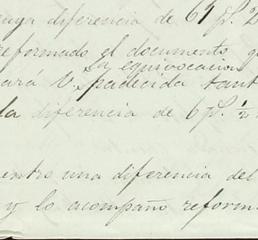 cuya diferencia de 61 p.
reformado el documento
la equivocacion
ará V. padecida tant
la diferencia de 6 p. ½
entro una diferencia del
y lo acompaño reform